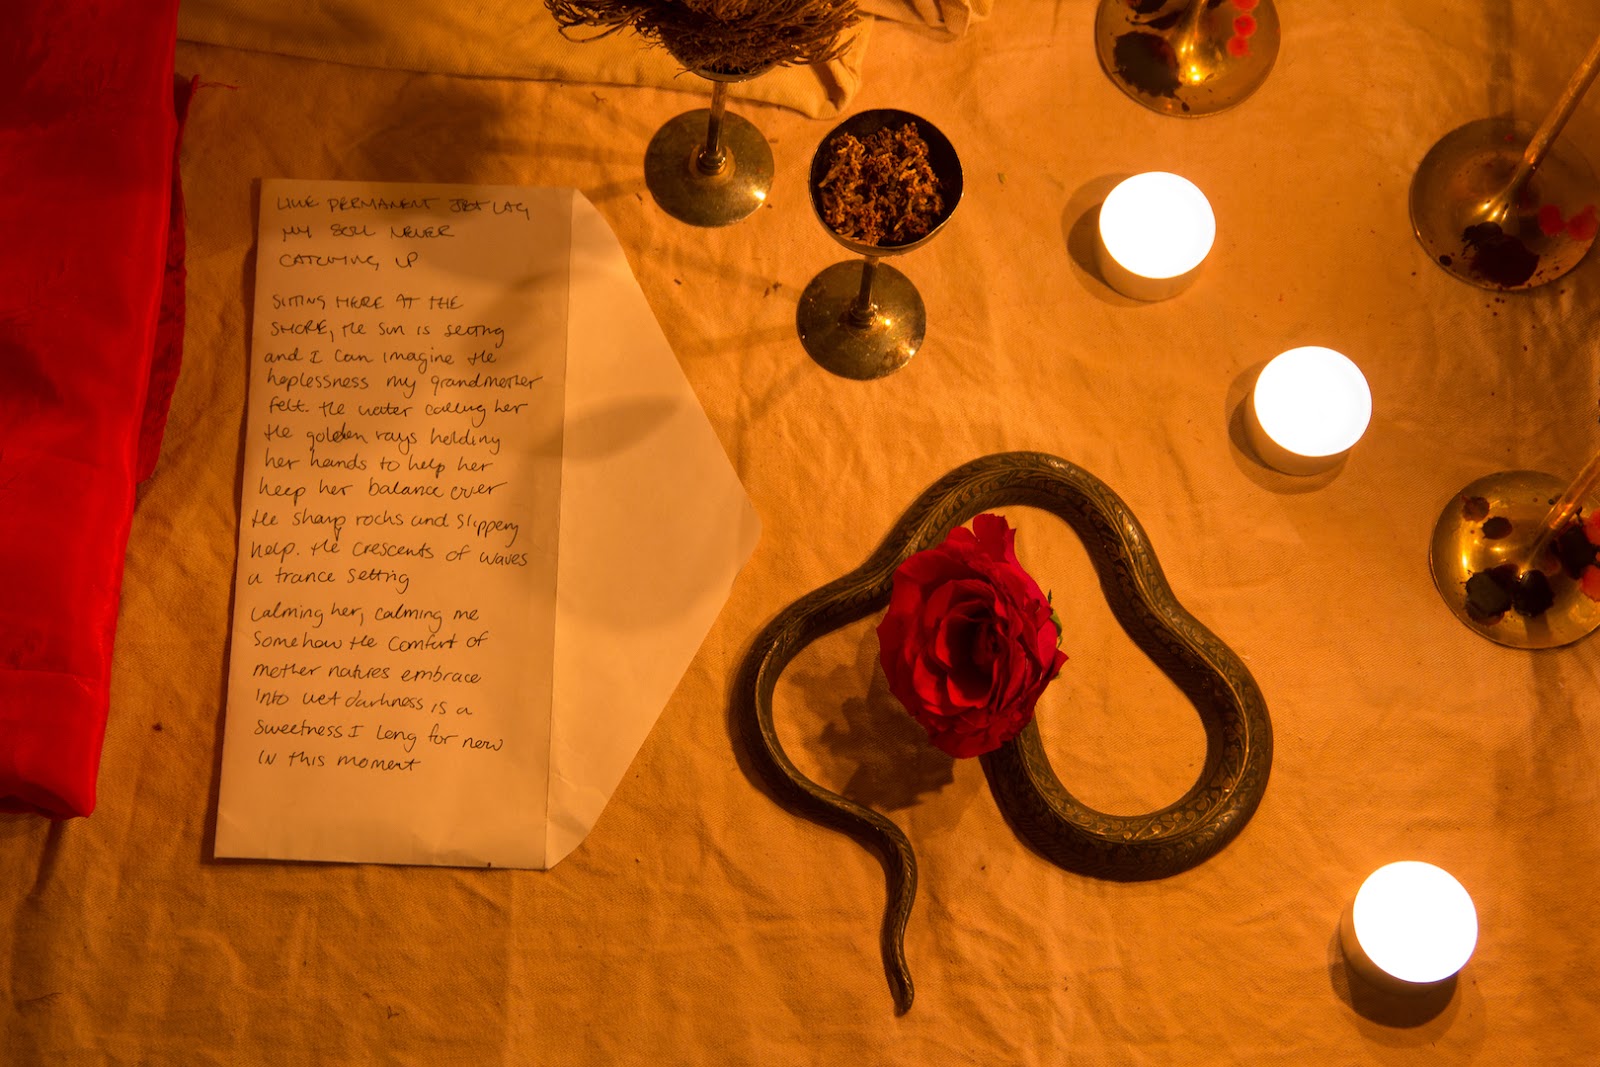 LIKE PERMANENT JET LAG
MY SOUL NEVER
CATCHING UP
SITTING HERE AT THE
SHORE, the sun is setting
and I can imagine the
hoplessness my grandmother
felt. The water calling her
the golden rays holding
her hands to help her
keep her balance over
the sharp rocks and slippery
kelp. The crescents of waves
a trance setting
calming her, calming me
Somehow the comfort of
mother natures embrace
into wet darkness is a
sweetness I long for now
in this moment